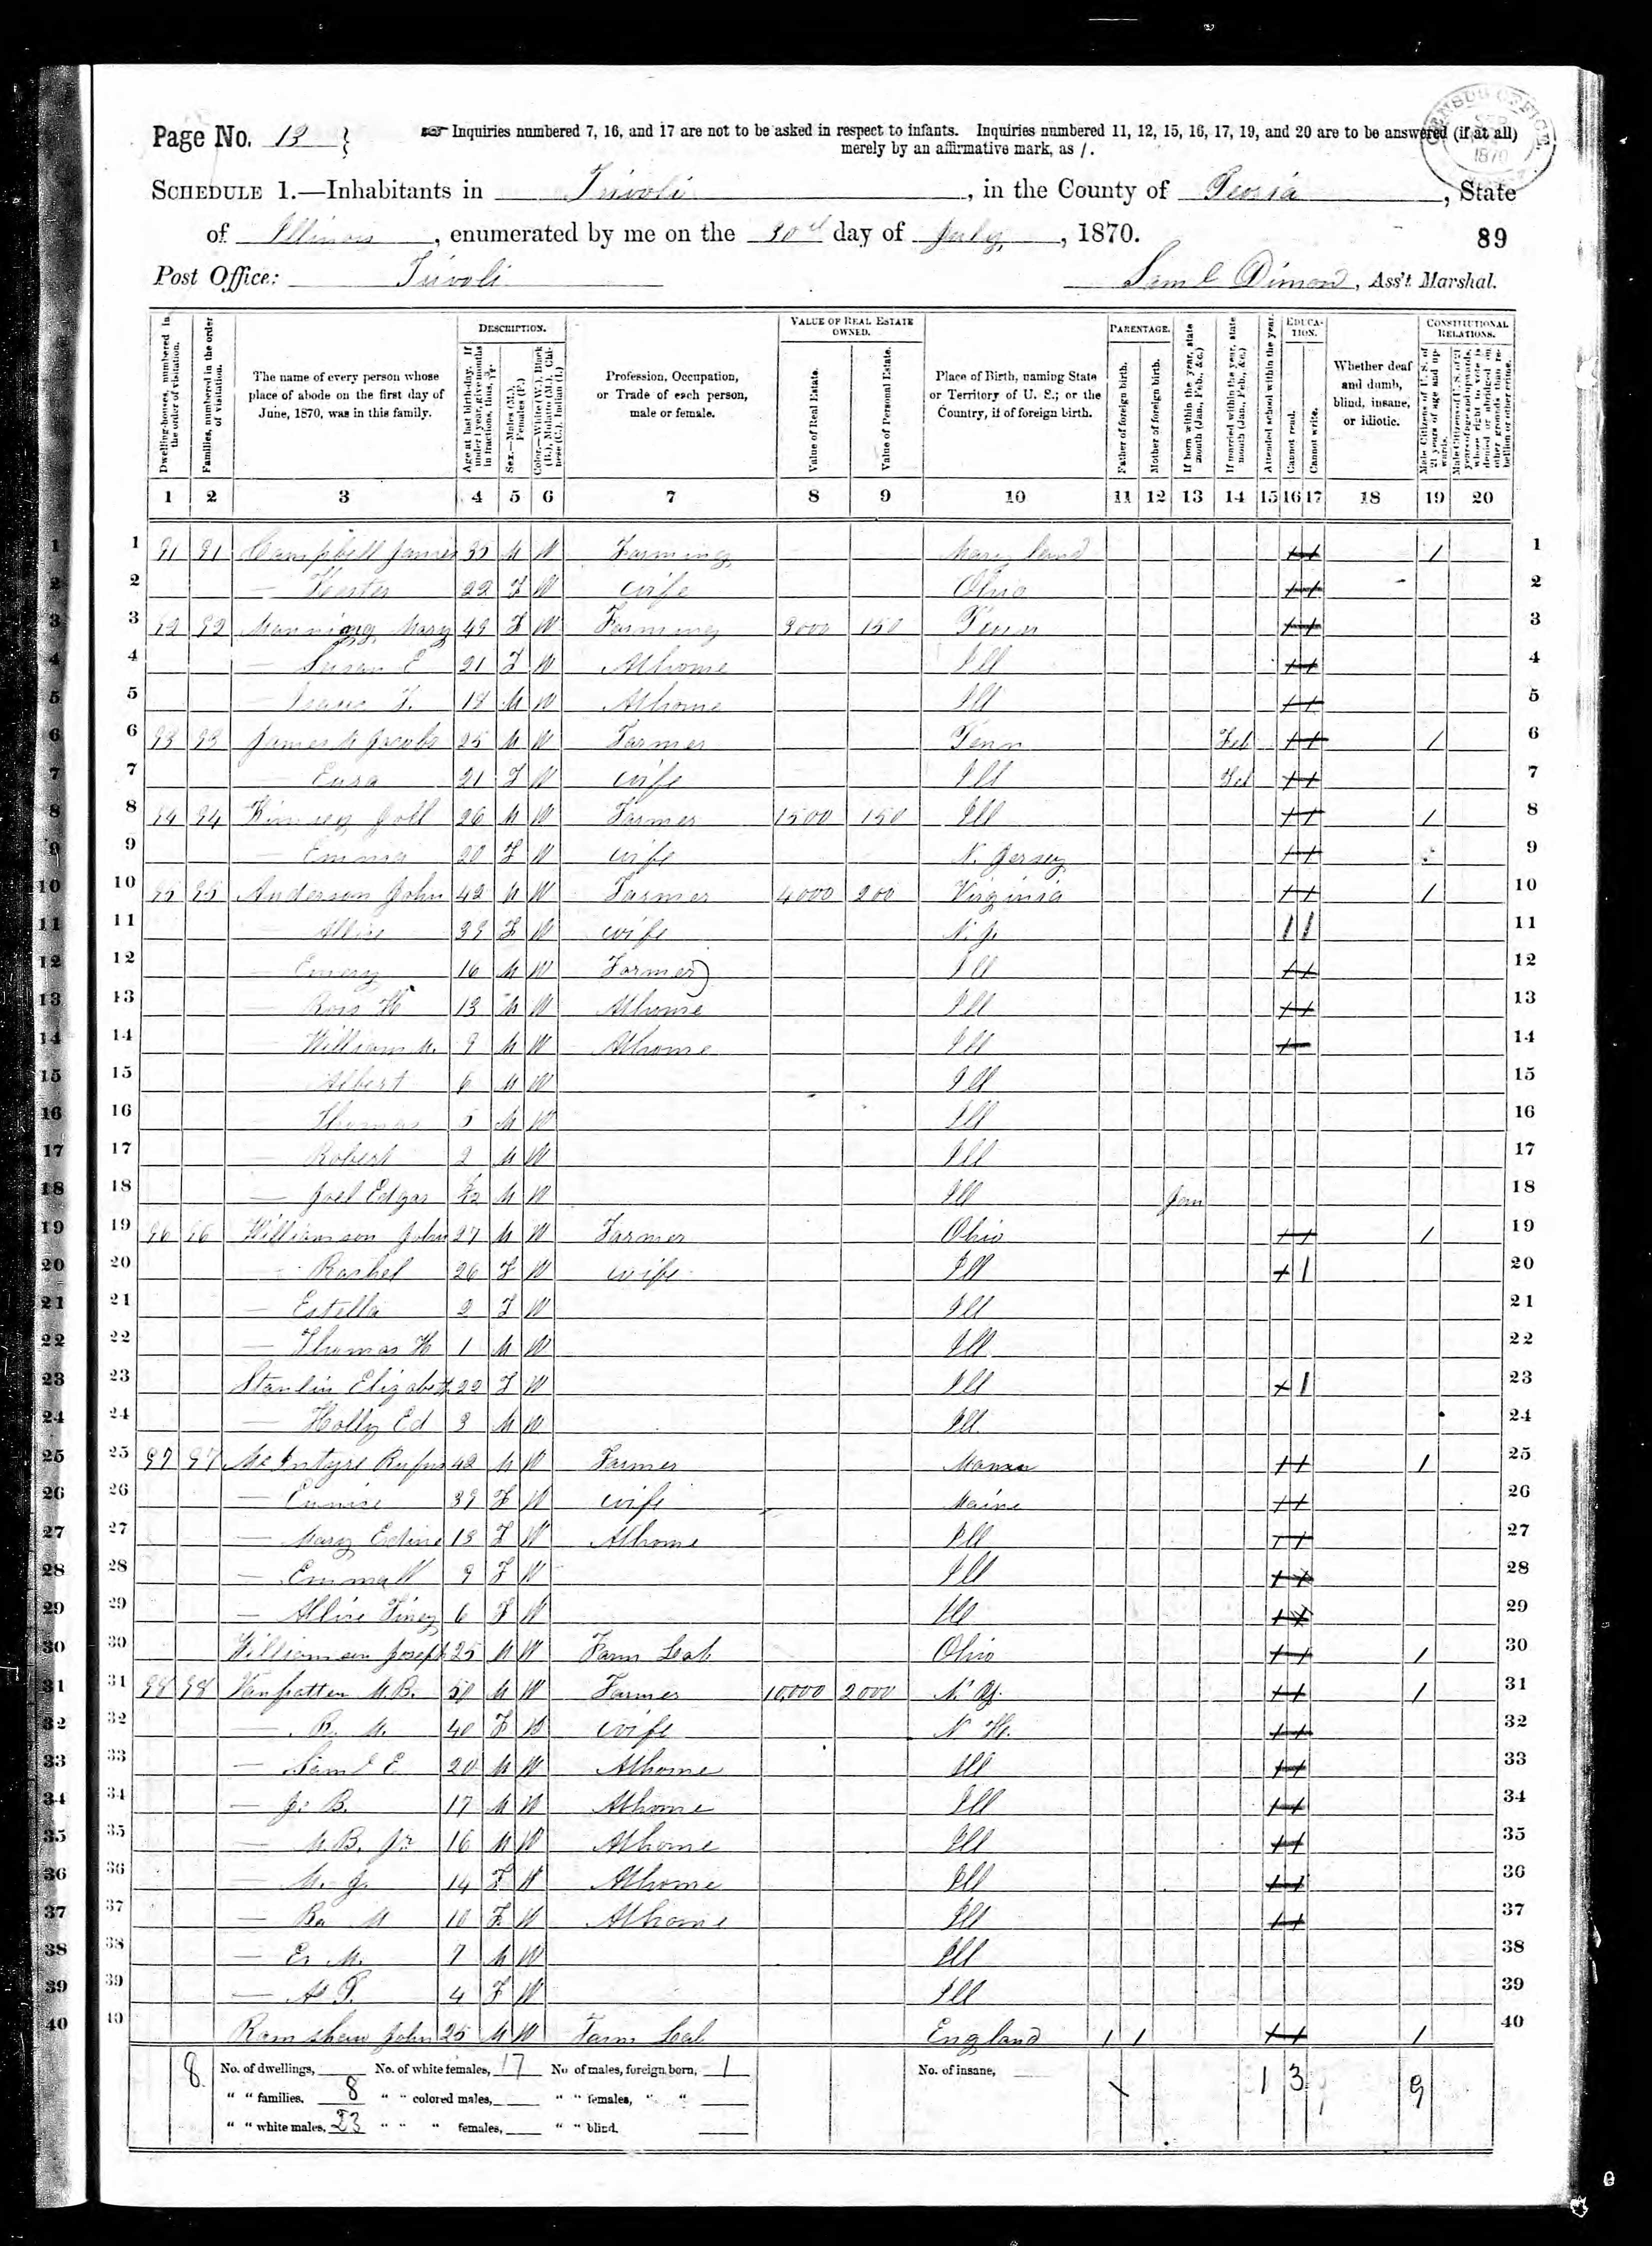 Page No. 13
Inquiries numbered 7, 16, and 17 are not to be asked in respect to infants. Inquiries numbered 11, 12, 15, 16, 17, 19, and 20 are to be answered (if at all)
merely by an affirmative mark, as /.
CENSUS OFFICE 1870
SCHEDULE 1.—Inhabitants in Trivoli, in the County of Peoria, State
of Illinois, enumerated by me on the day of July, 1870.
89
Post Office: Trivoli
Saml Dimon, Ass't Marshal.
Dwelling-houses, numbered in the order of visitation.
Families, numbered in the order of visitation.
The name of every person whose place of abode on the first day of June, 1870, was in this family.
DESCRIPTION.
Age at last birth-day. If under 1 year, give months in fractions, thus, 3/12.
Sex.—Males (M.), Females (F.)
Color.—White (W.), Black (B.), Mulatto (M.), Chinese (C.), Indian (I.)
Profession, Occupation, or Trade of each person, male or female.
VALUE OF REAL ESTATE OWNED.
Value of Real Estate.
Value of Personal Estate.
Place of Birth, naming State or Territory of U. S.; or the Country, if of foreign birth.
PARENTAGE.
Father of foreign birth.
Mother of foreign birth.
If born within the year, state month (Jan., Feb., &c.)
If married within the year, state month (Jan., Feb., &c.)
Attended school within the year.
EDUCATION.
Cannot read.
Cannot write.
Whether deaf and dumb, blind, insane, or idiotic.
CONSTITUTIONAL RELATIONS.
Male Citizens of U. S. of 21 years of age and upwards.
Male Citizens of U. S. of 21 years of age and upwards, whose right to vote is denied or abridged on other grounds than rebellion or other crime.
1 2 3 4 5 6 7 8 9 10 11 12 13 14 15 16 17 18 19 20
1 91 91 Campbell James 35 M W Farming Mary land 1 1
2 — Hester 22 F W wife Ohio 2
3 92 92 Manning Mary 49 F W Farming 3000 150 Penn 3
4 — Susan E 21 F W At home Ill 4
5 — Isaac 18 M W At home Ill 5
6 93 93 James Jacobs 25 M W Farmer Penn Feb 1 6
7 — 21 F W wife Ill Feb 7
8 94 94 Kinsey 26 M W Farmer 1500 150 Ill 1 8
9 — Emma 20 F W wife N. Jersey 9
10 95 95 Anderson John 42 M W Farmer 4000 200 Virginia 1 10
11 — Allice 39 F W wife N. J. 1 1 11
12 — Emery 16 M W Farmer Ill 12
13 — Ross H 13 M W At home Ill 13
14 — William M. 9 M W At home Ill 14
15 Albert 6 M W Ill 15
16 — Thomas 5 M W Ill 16
17 — Robert 2 M W Ill 17
18 — Joel Edgar M W Ill Jan 18
19 96 96 Williamson John 27 M W Farmer Ohio 1 19
20 — Rachel 26 F W wife Ill 1 20
21 — Estella 2 F W Ill 21
22 — Thomas H 1 M W Ill 22
23 Elizabeth 22 F W Ill 1 23
24 — Ed 3 M W Ill 24
25 97 97 McIntyre Rufus 42 M W Farmer 1 25
26 — Eunice 39 F W wife Maine 26
27 — Mary 13 F W At home Ill 27
28 — Emma 9 F W Ill 28
29 — Allice 6 F W Ill 29
30 Williamson Joseph 25 M W Farm Lab Ohio 1 30
31 98 98 Vanpatten M. B. 50 M W Farmer 10,000 2000 N. Y. 1 31
32 — R. M. 40 F W wife N. H. 32
33 — Saml E 20 M W At home Ill 33
34 — J. B. 17 M W At home Ill 34
35 — M. B. Jr 16 M W At home Ill 35
36 — M. J. 14 F W At home Ill 36
37 — M 10 F W At home Ill 37
38 — M. 7 M W Ill 38
39 — 4 F W Ill 39
40 Ramshaw John 25 M W Farm Lab England 1 1 1 40
8 No. of dwellings, No. of white females, 17 No. of males, foreign born, 1 No. of insane,
" " families, 8 " " colored males, " " females, " "
" " white males, 23 " " " females, " " blind,
1 3 9